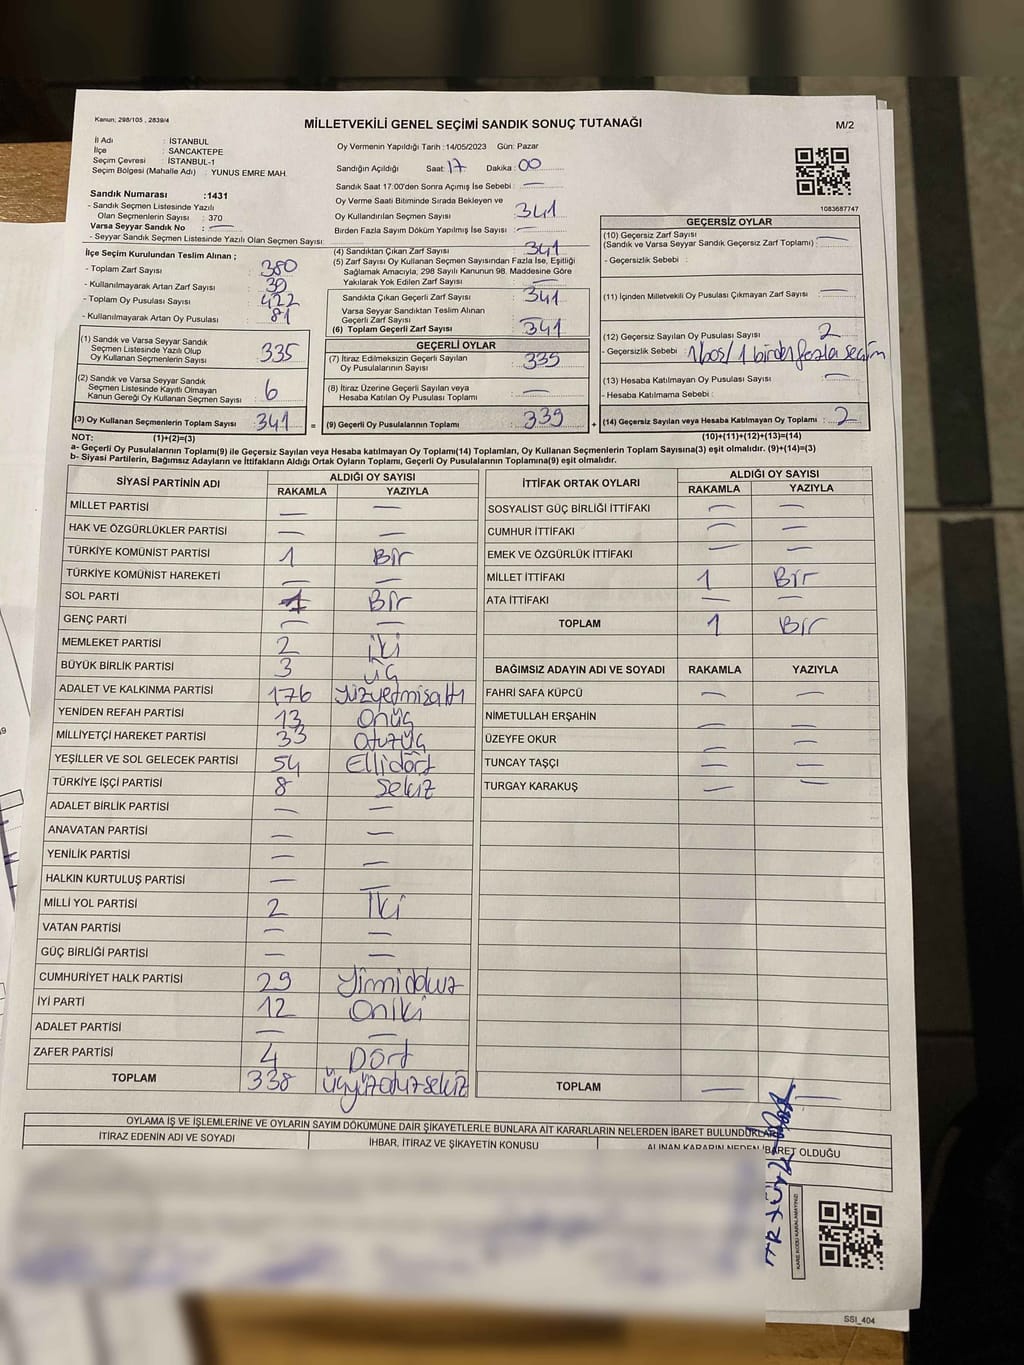 Kanun; 298/105 , 2839/4
MİLLETVEKİLİ GENEL SEÇİMİ SANDIK SONUÇ TUTANAĞI
M/2
İl Adı : İSTANBUL
İlçe : SANCAKTEPE
Seçim Çevresi : İSTANBUL-1
Seçim Bölgesi (Mahalle Adı) : YUNUS EMRE MAH.
Sandık Numarası :1431
- Sandık Seçmen Listesinde Yazılı
Olan Seçmenlerin Sayısı : 370
Varsa Seyyar Sandık No : —
- Seyyar Sandık Seçmen Listesinde Yazılı Olan Seçmen Sayısı:
Oy Vermenin Yapıldığı Tarih : 14/05/2023 Gün: Pazar
Sandığın Açıldığı Saat: 17 Dakika: 00
Sandık Saat 17:00'den Sonra Açımış İse Sebebi : —
Oy Verme Saati Bitiminde Sırada Bekleyen ve
Oy Kullandırılan Seçmen Sayısı : 341
Birden Fazla Sayım Döküm Yapılmış İse Sayısı : —
1083687747
İlçe Seçim Kurulundan Teslim Alınan ;
- Toplam Zarf Sayısı : 380
- Kullanılmayarak Artan Zarf Sayısı : 39
- Toplam Oy Pusulası Sayısı : 422
- Kullanılmayarak Artan Oy Pusulası : 81
(1) Sandık ve Varsa Seyyar Sandık
Seçmen Listesinde Yazılı Olup
Oy Kullanan Seçmenlerin Sayısı : 335
(2) Sandık ve Varsa Seyyar Sandık
Seçmen Listesinde Kayıtlı Olmayan
Kanun Gereği Oy Kullanan Seçmen Sayısı : 6
(3) Oy Kullanan Seçmenlerin Toplam Sayısı : 341
(4) Sandıktan Çıkan Zarf Sayısı : 341
(5) Zarf Sayısı Oy Kullanan Seçmen Sayısından Fazla İse, Eşitliği
Sağlamak Amacıyla, 298 Sayılı Kanunun 98. Maddesine Göre
Yakılarak Yok Edilen Zarf Sayısı : —
Sandıkta Çıkan Geçerli Zarf Sayısı : 341
Varsa Seyyar Sandıktan Teslim Alınan
Geçerli Zarf Sayısı :
(6) Toplam Geçerli Zarf Sayısı : 341
GEÇERLİ OYLAR
(7) İtiraz Edilmeksizin Geçerli Sayılan
Oy Pusulalarının Sayısı : 339
(8) İtiraz Üzerine Geçerli Sayılan veya
Hesaba Katılan Oy Pusulaları Toplamı : —
= (9) Geçerli Oy Pusulalarının Toplamı : 339
GEÇERSİZ OYLAR
(10) Geçersiz Zarf Sayısı
(Sandık ve Varsa Seyyar Sandık Geçersiz Zarf Toplamı) : —
- Geçersizlik Sebebi :
(11) İçinden Milletvekili Oy Pusulası Çıkmayan Zarf Sayısı : —
(12) Geçersiz Sayılan Oy Pusulası Sayısı : 2
- Geçersizlik Sebebi : 1 boş/ 1 birden fazla seçim
(13) Hesaba Katılmayan Oy Pusulası Sayısı : —
- Hesaba Katılmama Sebebi :
+ (14) Geçersiz Sayılan veya Hesaba Katılmayan Oy Toplamı : 2
NOT: (1)+(2)=(3)
(10)+(11)+(12)+(13)=(14)
a- Geçerli Oy Pusulalarının Toplamı(9) ile Geçersiz Sayılan veya Hesaba katılmayan Oy Toplamı(14) Toplamları, Oy Kullanan Seçmenlerin Toplam Sayısına(3) eşit olmalıdır. (9)+(14)=(3)
b- Siyasi Partilerin, Bağımsız Adayların ve İttifakların Aldığı Ortak Oyların Toplamı, Geçerli Oy Pusulalarının Toplamına(9) eşit olmalıdır.
SİYASİ PARTİNİN ADI ALDIĞI OY SAYISI
RAKAMLA YAZIYLA
MİLLET PARTİSİ — —
HAK VE ÖZGÜRLÜKLER PARTİSİ — —
TÜRKİYE KOMÜNİST PARTİSİ 1 Bir
TÜRKİYE KOMÜNİST HAREKETİ — —
SOL PARTİ 1 Bir
GENÇ PARTİ — —
MEMLEKET PARTİSİ 2 iki
BÜYÜK BİRLİK PARTİSİ 3 üç
ADALET VE KALKINMA PARTİSİ 176 Yüzyetmişaltı
YENİDEN REFAH PARTİSİ 13 Onüç
MİLLİYETÇİ HAREKET PARTİSİ 33 Otuzüç
YEŞİLLER VE SOL GELECEK PARTİSİ 54 Ellidört
TÜRKİYE İŞÇİ PARTİSİ 8 Sekiz
ADALET BİRLİK PARTİSİ — —
ANAVATAN PARTİSİ — —
YENİLİK PARTİSİ — —
HALKIN KURTULUŞ PARTİSİ — —
MİLLİ YOL PARTİSİ 2 İki
VATAN PARTİSİ — —
GÜÇ BİRLİĞİ PARTİSİ — —
CUMHURİYET HALK PARTİSİ 29 Yirmidokuz
İYİ PARTİ 12 Oniki
ADALET PARTİSİ — —
ZAFER PARTİSİ 4 Dört
TOPLAM 338 üçyüzotuzsekiz
İTTİFAK ORTAK OYLARI ALDIĞI OY SAYISI
RAKAMLA YAZIYLA
SOSYALİST GÜÇ BİRLİĞİ İTTİFAKI — —
CUMHUR İTTİFAKI — —
EMEK VE ÖZGÜRLÜK İTTİFAKI — —
MİLLET İTTİFAKI 1 Bir
ATA İTTİFAKI — —
TOPLAM 1 Bir
BAĞIMSIZ ADAYIN ADI VE SOYADI RAKAMLA YAZIYLA
FAHRİ SAFA KÜPCÜ — —
NİMETULLAH ERŞAHİN — —
ÜZEYFE OKUR — —
TUNCAY TAŞÇI — —
TURGAY KARAKUŞ — —
TOPLAM — —
OYLAMA İŞ VE İŞLEMLERİNE VE OYLARIN SAYIM DÖKÜMÜNE DAİR ŞİKAYETLERLE BUNLARA AİT KARARLARIN NELERDEN İBARET BULUNDUKLARI
İTİRAZ EDENİN ADI VE SOYADI
İHBAR, İTİRAZ VE ŞİKAYETİN KONUSU
ALINAN KARARIN NEDEN İBARET OLDUĞU
KARE KODU KARALAMAYINIZ!
SSI_404